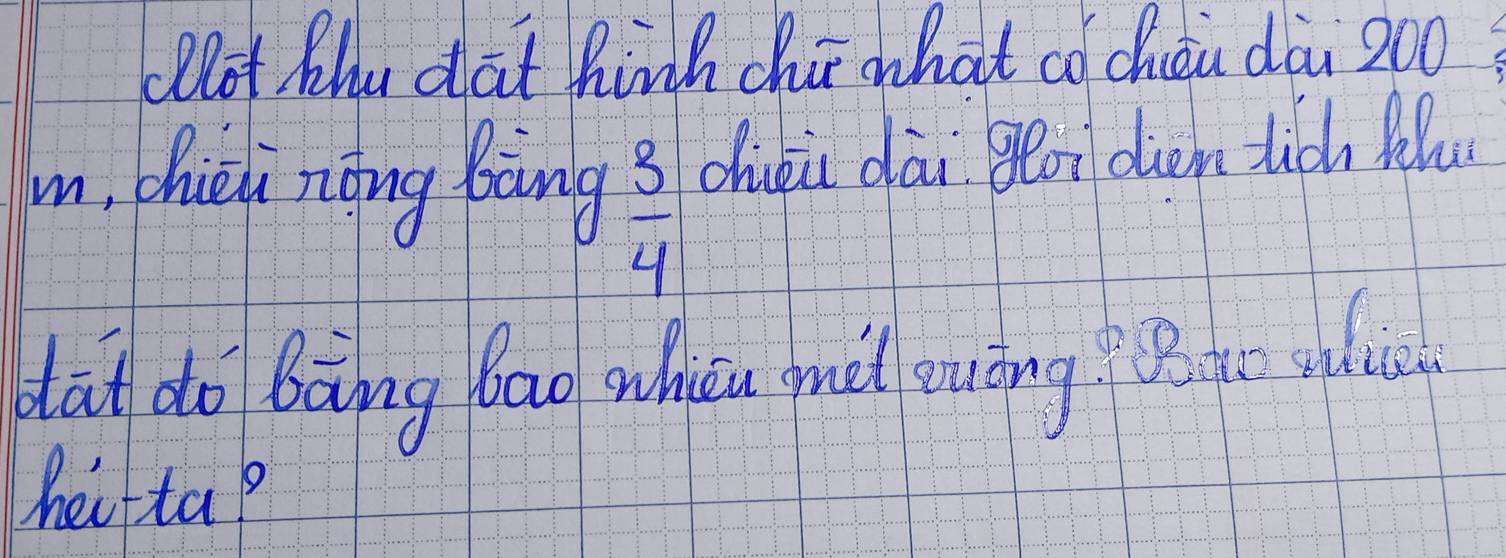 Một khu đất hình chữ nhật có chiều dài 200
m, chiều rộng bằng 3/4 chiều dài. Hỏi diện tích khu
đất đó bằng bao nhiêu mét vuông? Bao nhiêu
héc-ta?